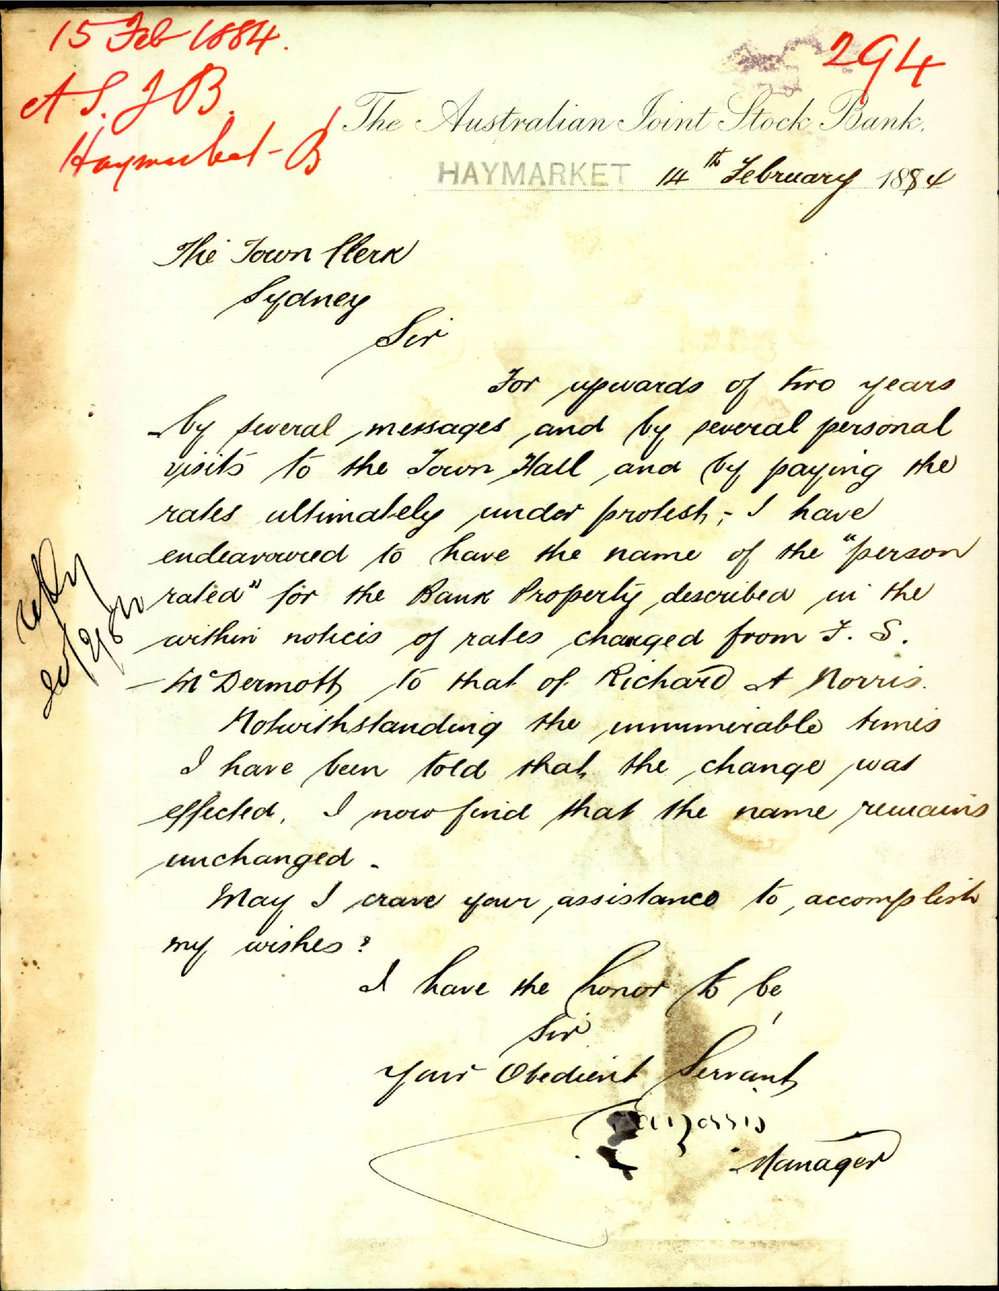 15 Feb 1884.
A S. J B.
Haymarket - B
294
The Australian Joint Stock Bank,
HAYMARKET 14th February 1884
The Town Clerk
Sydney
Sir
For upwards of two years
by several messages and by several personal
visits to the Town Hall and by paying the
rates ultimately under protest; - I have
endeavoured to have the name of the "person
rated" for the Bank Property described in the
within notices of rates changed from F. S.
McDermott to that of Richard A Norris.
Notwithstanding the innumerable times
I have been told that the change was
effected, I now find that the name remains
unchanged.
May I crave your assistance to accomplish
my wishes?
I have the honor to be,
Sir
Your Obedient Servant
Norris
Manager